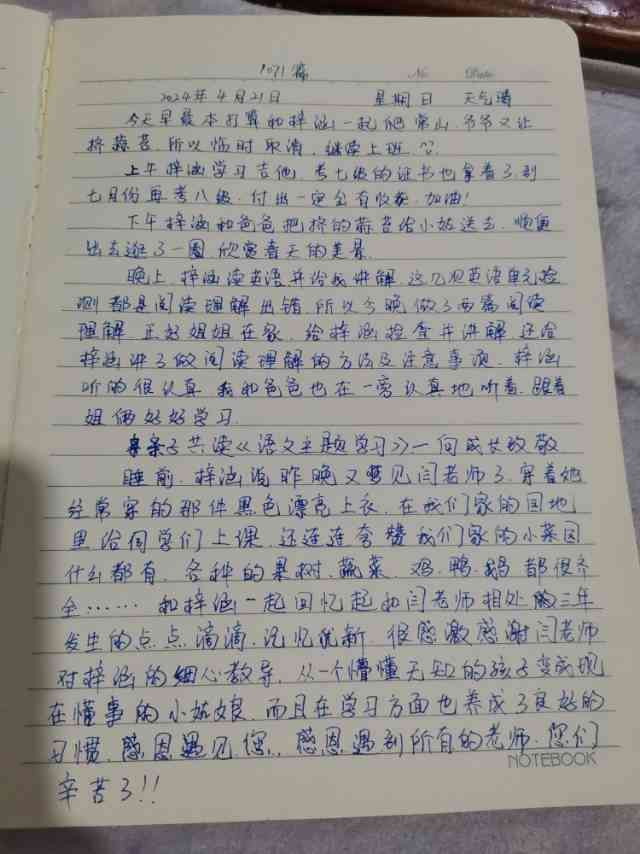 1071篇
No Date
2024年4月21日 星期日 天气晴
今天早晨本打算和梓涵一起爬常山.爷爷又让
挤蒜苔.所以临时取消,继续上班.??
上午梓涵学习吉他.考七级的证书也拿着了.到
七月份再考八级.付出一定会有收获.加油!
下午梓涵和爸爸把挤的蒜苔给小姑送去.顺便
出去逛了一圈欣赏春天的美景.
晚上.梓涵读英语并给我讲解.这几次英语单元检
测都是阅读理解出错.所以今晚做了两篇阅读
理解.正好姐姐在家.给梓涵检查并讲解.还给
梓涵讲了做阅读理解的方法及注意事项.梓涵
听的很认真.我和爸爸也在一旁认真地听着.跟着
姐俩好好学习.
亲子共读《语文主题学习》—向成长致敬
睡前.梓涵说昨晚又梦见闫老师了.穿着她
经常穿的那件黑色漂亮上衣.在我们家的园地
里给同学们上课.还连连夸赞我们家的小菜园
什么都有.各种的果树.蔬菜.鸡.鸭.鹅都很齐
全……和梓涵一起回忆起和闫老师相处的三年
发生的点点滴滴.记忆犹新.很感激感谢闫老师
对梓涵的细心教导.从一个懵懂无知的孩子变成现
在懂事的小姑娘.而且在学习方面也养成了良好的
习惯.感恩遇见您.,感恩遇到所有的老师.您们
NOTEBOOK
辛苦了!!